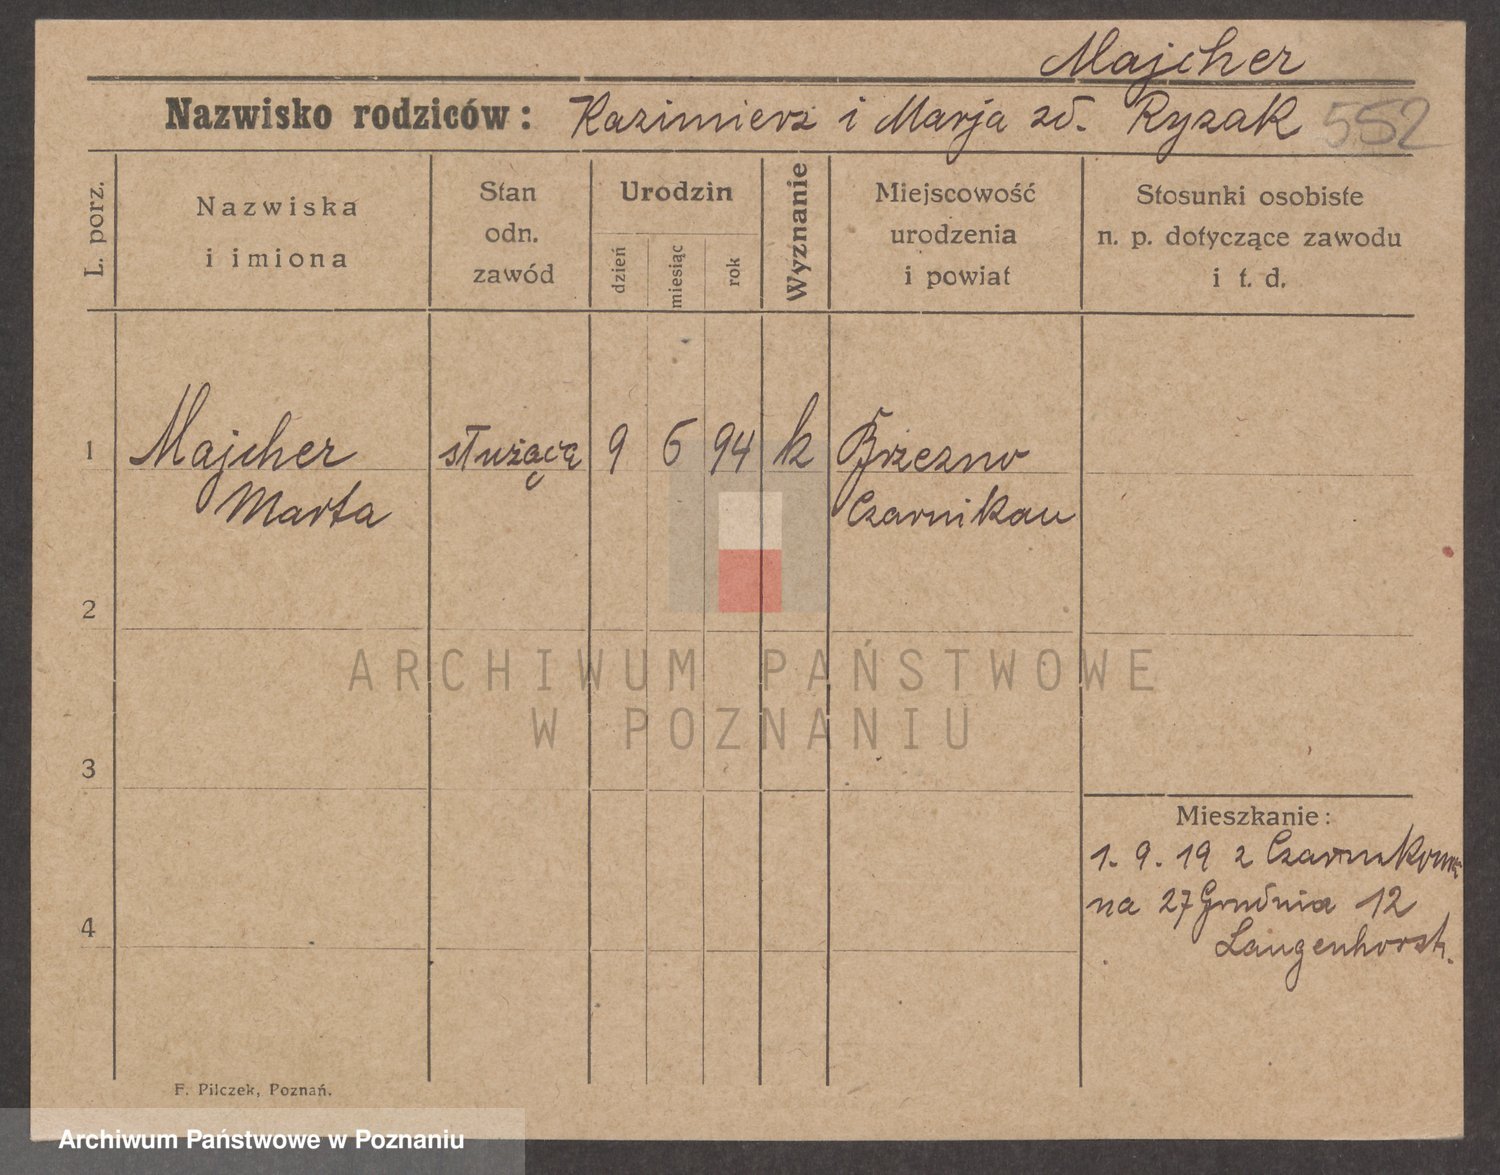 Majcher
Nazwisko rodziców: Kazimierz i Marja zd. Ryzak 552
L. porz.
Nazwiska
i imiona
Stan
odn.
zawód
Urodzin
dzień
miesiąc
rok
Wyznanie
Miejscowość
urodzenia
i powiat
Stosunki osobiste
n. p. dotyczące zawodu
i t. d.
1 Majcher służąca 9 6 94 k Brzezno
Marta Czarnikau
2
ARCHIWUM PAŃSTWOWE
W POZNANIU
3
Mieszkanie:
1. 9. 19 z
na 27 Grudnia 12
4
Langenhorst.
F. Pilczek, Poznań.
Archiwum Państwowe w Poznaniu